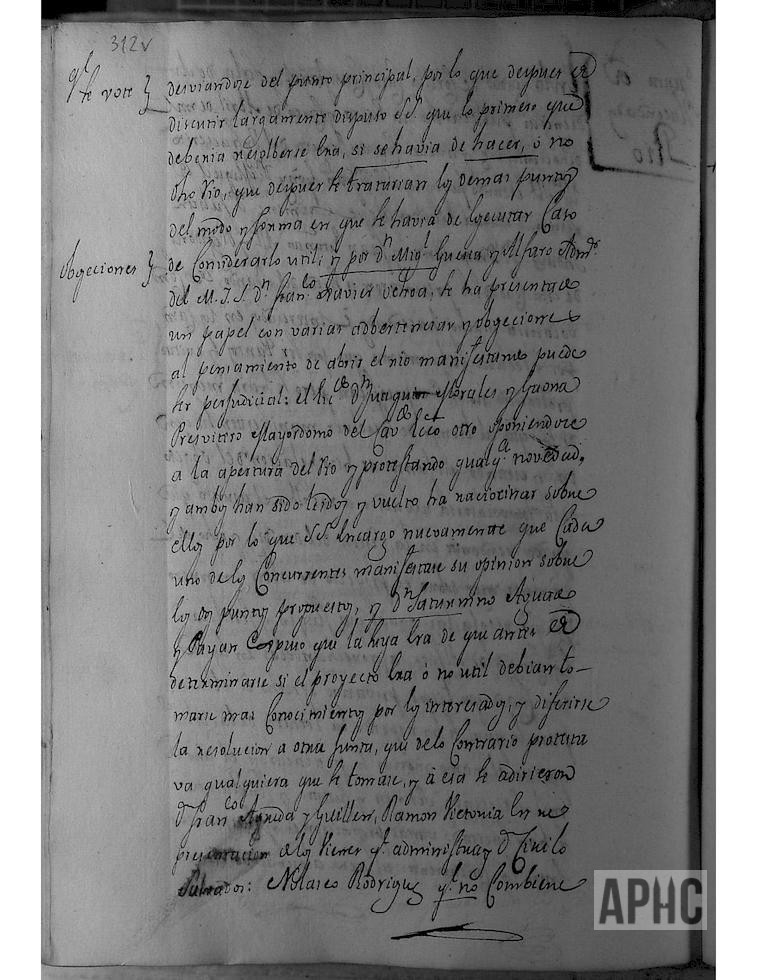 312v
qe
se vote
desviandose del punto principal, por lo que despues de
discutir largamente dispuso S.Sª. que lo primero que
deberia resolberse era, si se havia de hacer, ò no
dho Rio, que despues se tratarian los demas puntos
del modo y forma en que se havia de ejecutar Caso
obgeciones
de Considerarlo util; y por dn Migl Guevara y Alfaro Admor
del M.I.S. dn Franco Xavier Uchoa, se ha presentado
un papel con varias adbertencias y obgeciones
al pensamiento de abrir el rio manifestando puede
ser perjudicial: el Licdo dn Juaquin Morales y Gaona
Presvitero Mayordomo del Cavdo Ecco otro oponiendose
a la apertura del Rio y protestando qualqa novedad,
y ambos han sido leidos y vuelto ha raciocinar sobre
ellos por lo que S.Sª. Encargo nuevamente que Cada
uno de los Concurrentes manifestase su opinion sobre
los dos puntos propuestos, y dn Saturnino Aguado
y Payan Expuso que la suya era de que antes de
determinarse si el proyecto era ò no util debian to-
marse mas Conocimientos por los interesados, y diferirse
la resolucion a otra Junta, que de lo Contrario protesta
va qualquiera que se tomase, y à esa se adirieron
d Franco Agueda y Guillen, Ramon Victoria En re
presentacion de los Vienes qe administra y d Cirilo
Salvador: Nolasco Rodriguez qe no Combiene
Rio
APHC